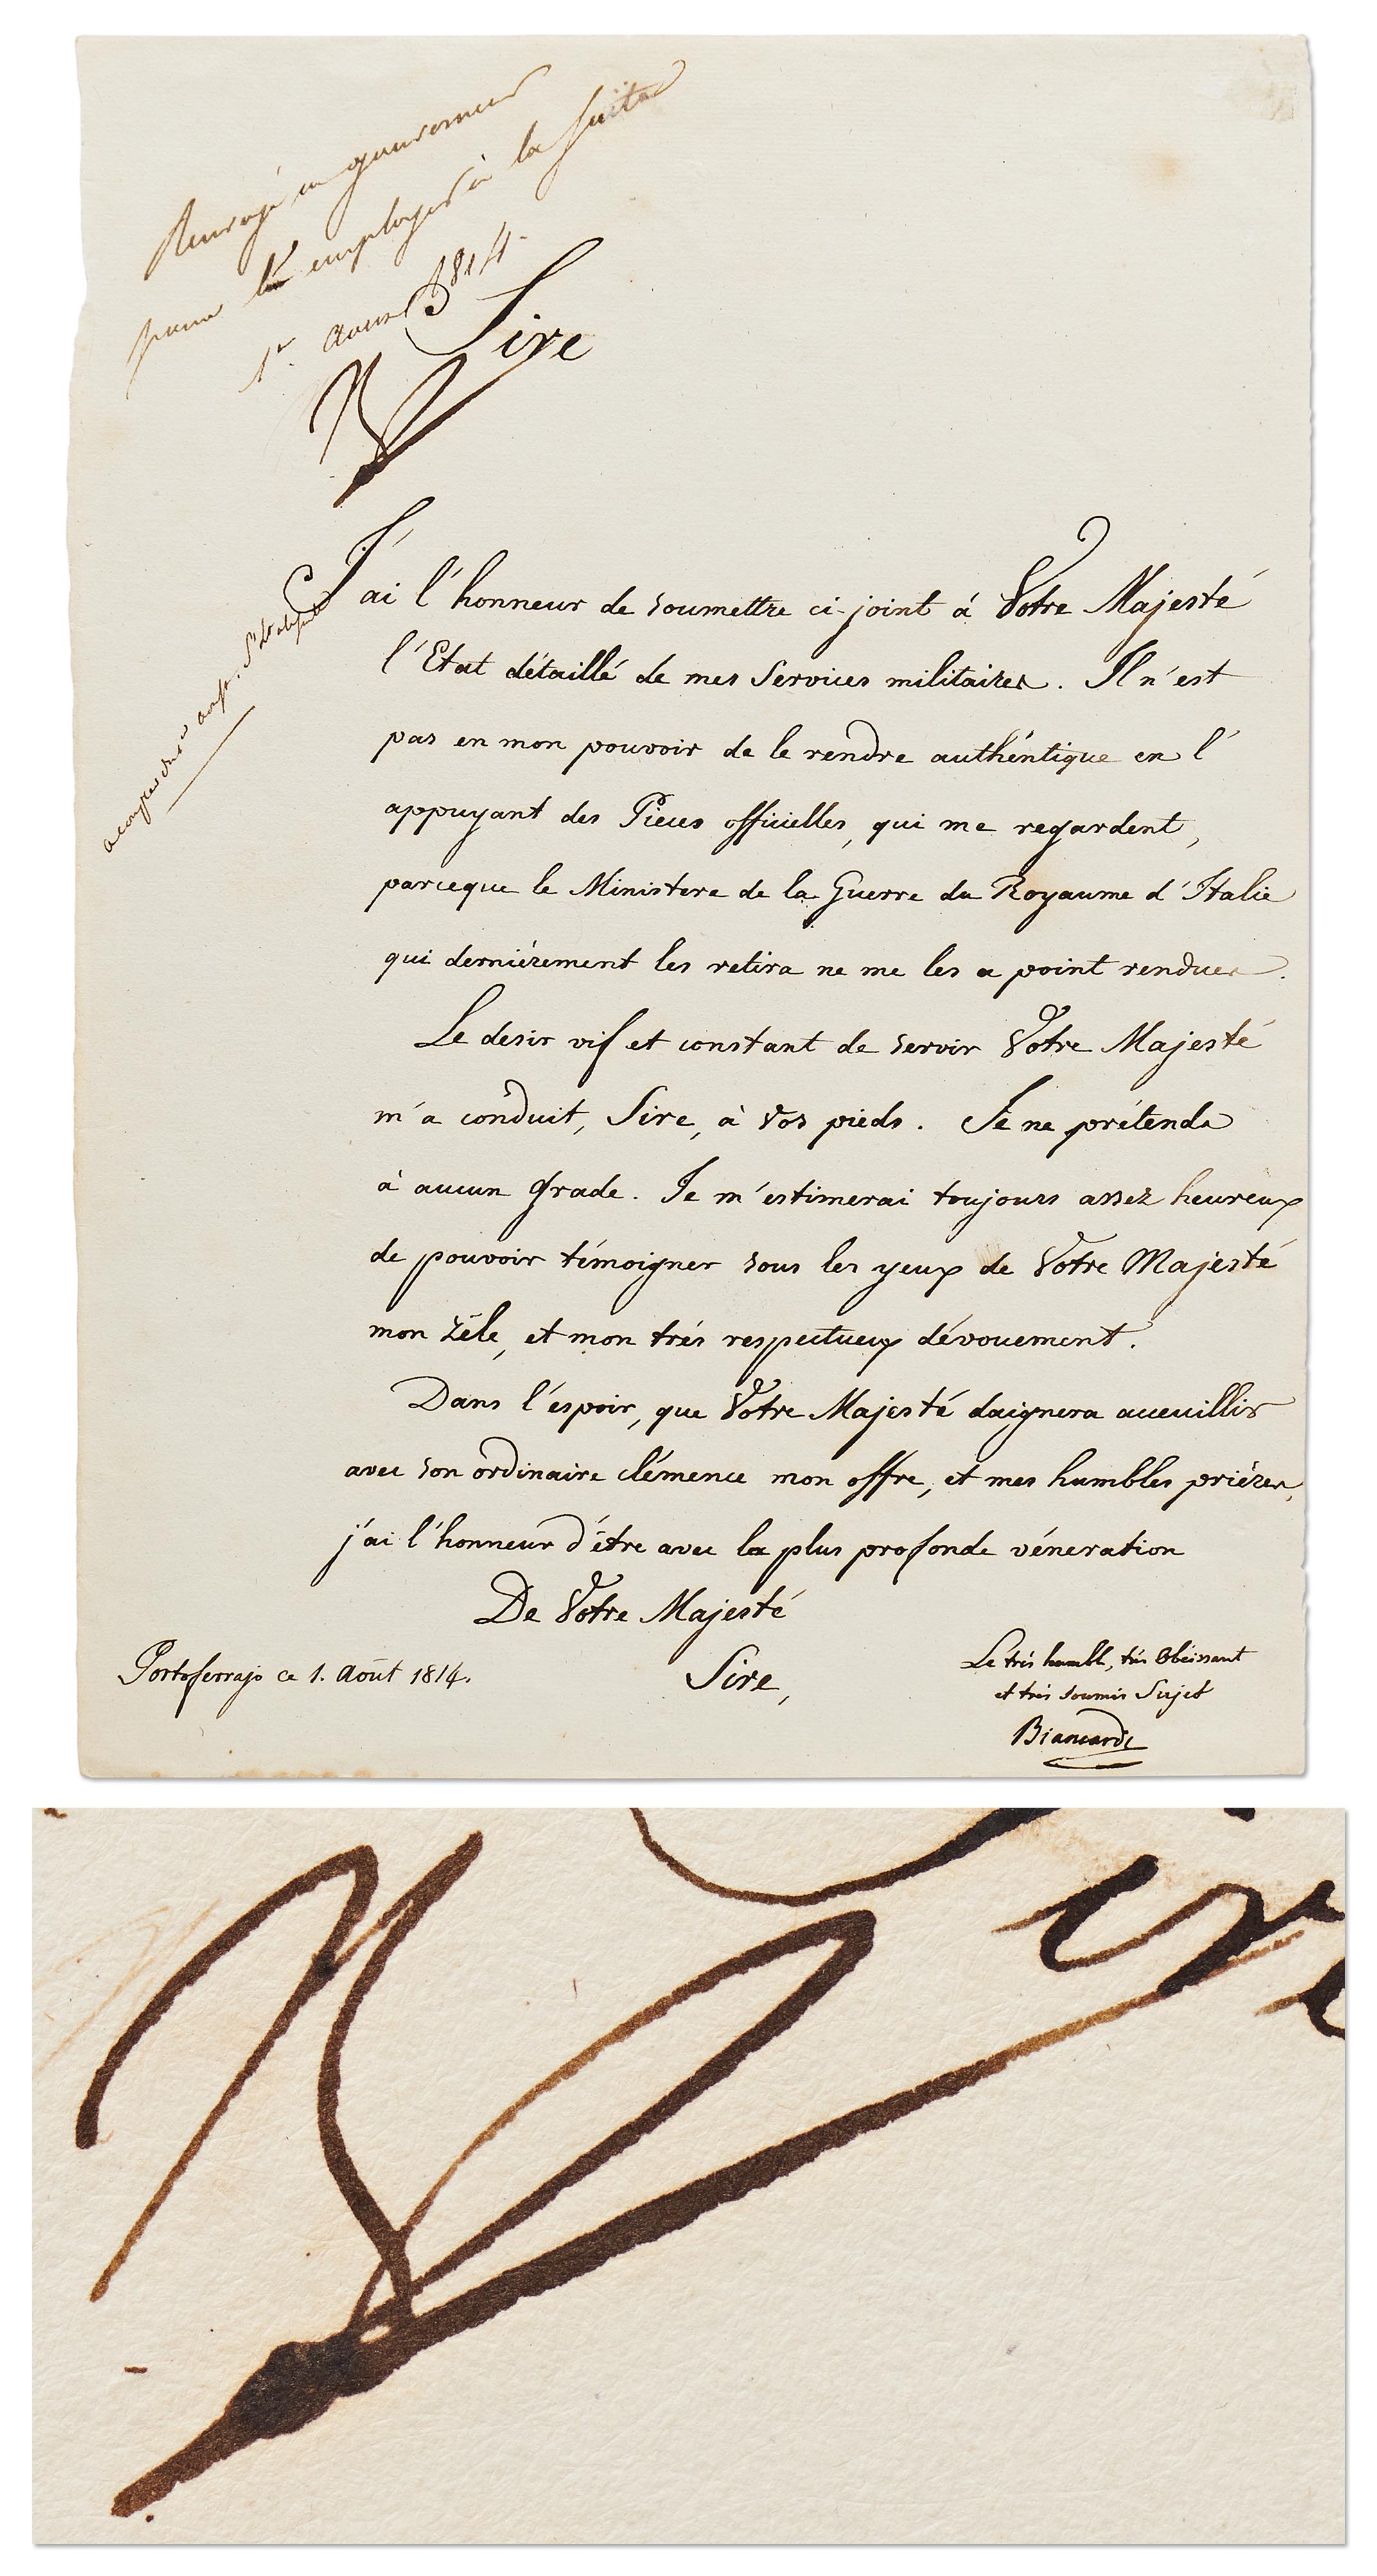 Renvoyé au gouverneur
pour les employer à la suite
1er aoust 1814.
Sire
J'ai l'honneur de soumettre ci-joint á Votre Majesté
l'Etat détaillé de mes Services militaires. Il n'est
pas en mon pouvoir de le rendre authéntique en l'
appuyant des Pieces officielles, qui me regardent,
parceque le Ministere de la Guerre du Royaume d'Italie
qui derniérement les retira ne me les a point rendues.
Le desir vif et constant de servir Votre Majesté
m'a conduit, Sire, à vos pieds. Je ne prétends
à aucun Grade. Je m'estimerai toujours assez heureux
de pouvoir témoigner sous les yeux de Votre Majesté
mon zéle, et mon trés respectueux dévouement.
Dans l'éspoir, que Votre Majesté daignera accuillir
avec son ordinaire clémence mon offre, et mes humbles priéres,
j'ai l'honneur d'être avec la plus profonde véneration
De Votre Majesté
Sire,
Portoferrajo ce 1. Août 1814.
Le trés humbl, trés Obéissant
et trés soumis Sujet
Biancardi